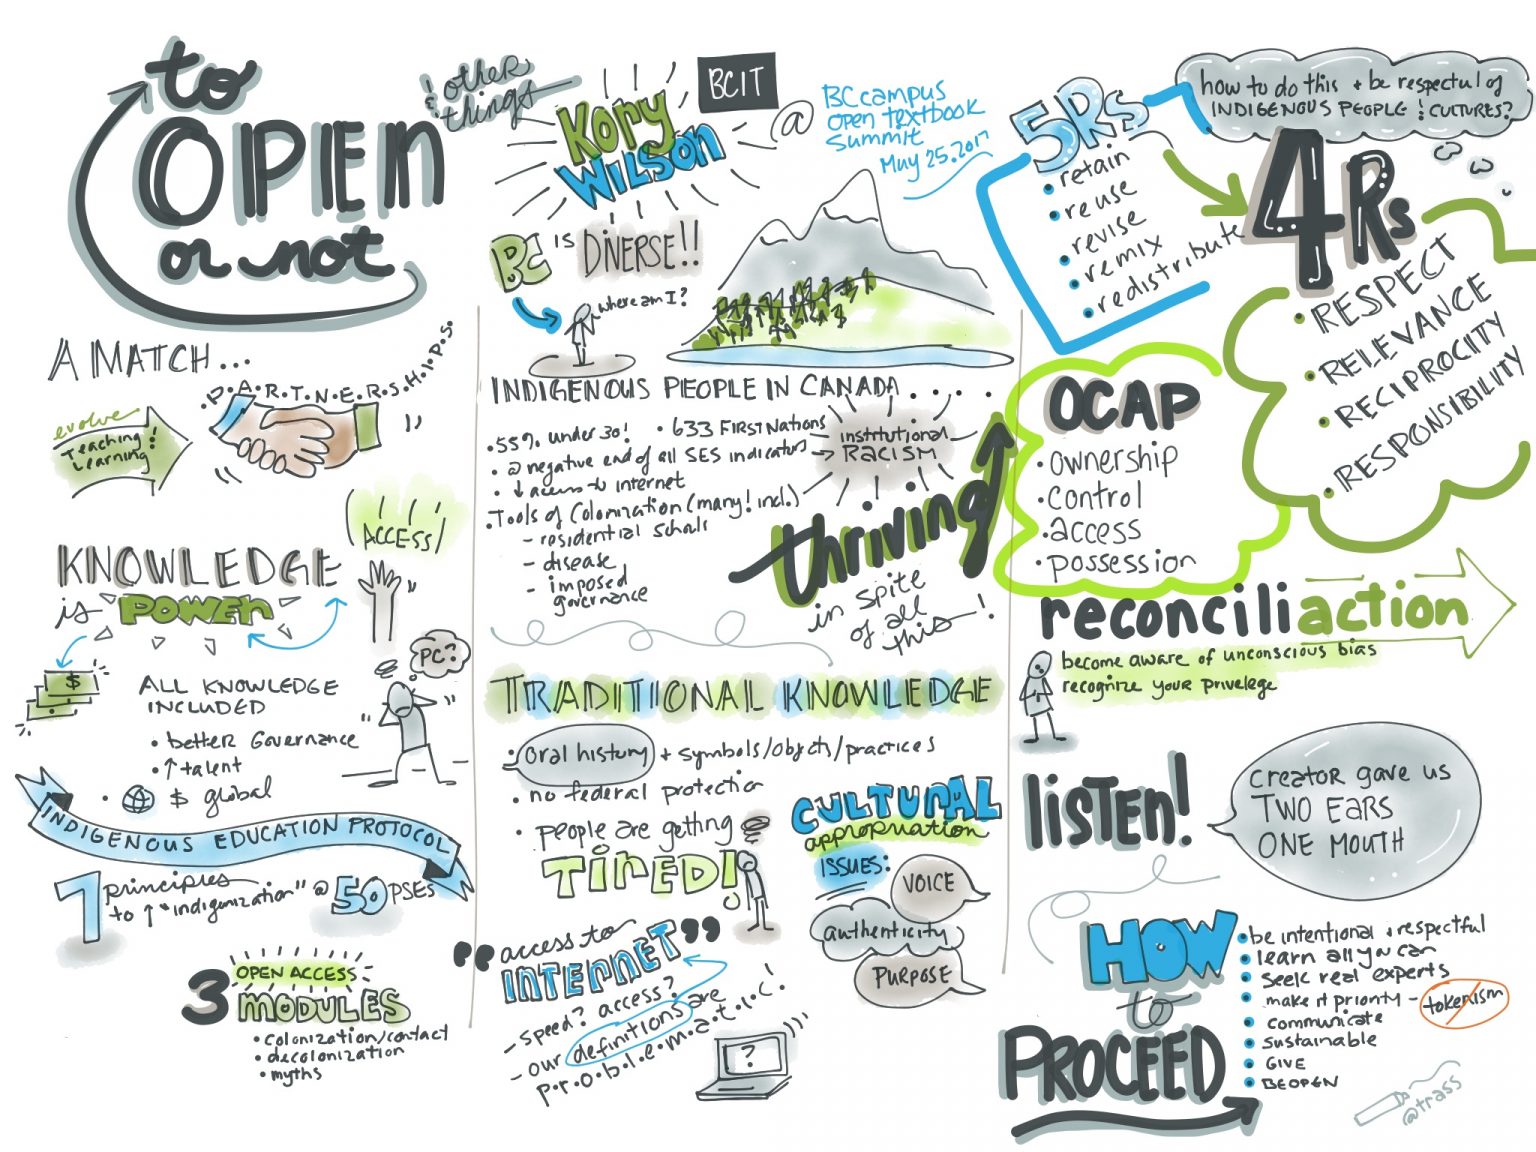 to
OPEN
or not
& other
things
Kory
Wilson
BCIT
@
BCcampus
Open Textbook
Summit
May 25.2017
A MATCH...
P.A.R.T.N.E.R.S.H.I.P.S.
evolve
Teaching &
Learning
(ACCESS)
KNOWLEDGE
is POWER
PC?
$
ALL KNOWLEDGE
INCLUDED
• better Governance
• ↑ talent
• $ global
INDIGENOUS EDUCATION PROTOCOL
7 principles
to ↑ "indigenization" @ 50 PSES
3 OPEN ACCESS
MODULES
• colonization/contact
• decolonization
• myths
BC IS DIVERSE!!
where am I?
INDIGENOUS PEOPLE IN CANADA....
• 55% under 30!
• 633 FIRST NATIONS
• @ negative end of all SES indicators →
• ↓ access to internet
institutional
RACISM
• Tools of Colonization (many! incl.)
- residential schools
- disease
- imposed
governance
thriving
in spite
of all
this!
TRADITIONAL KNOWLEDGE
• Oral history + symbols/objects/practices
• no federal protection
• people are getting
TIRED!
CULTURAL
appropriation
ISSUES:
VOICE
authenticity
PURPOSE
"access to
INTERNET"
- speed? access?
- our definitions are
p.r.o.b.l.e.m.a.t.i.c!
?
5Rs
• retain
• reuse
• revise
• remix
• redistribute
how to do this + be respectful of
INDIGENOUS PEOPLE & CULTURES?
4Rs
• RESPECT
• RELEVANCE
• RECIPROCITY
• RESPONSIBILITY
OCAP
• ownership
• control
• access
• possession
reconciliaction
become aware of unconscious bias
recognize your privelege
listen!
Creator gave us
TWO EARS
ONE MOUTH
HOW
to
PROCEED
• be intentional + respectful
• learn all you can
• seek real experts
• make it priority - tokenism
• communicate
• sustainable
• GIVE
• BE OPEN
@trass